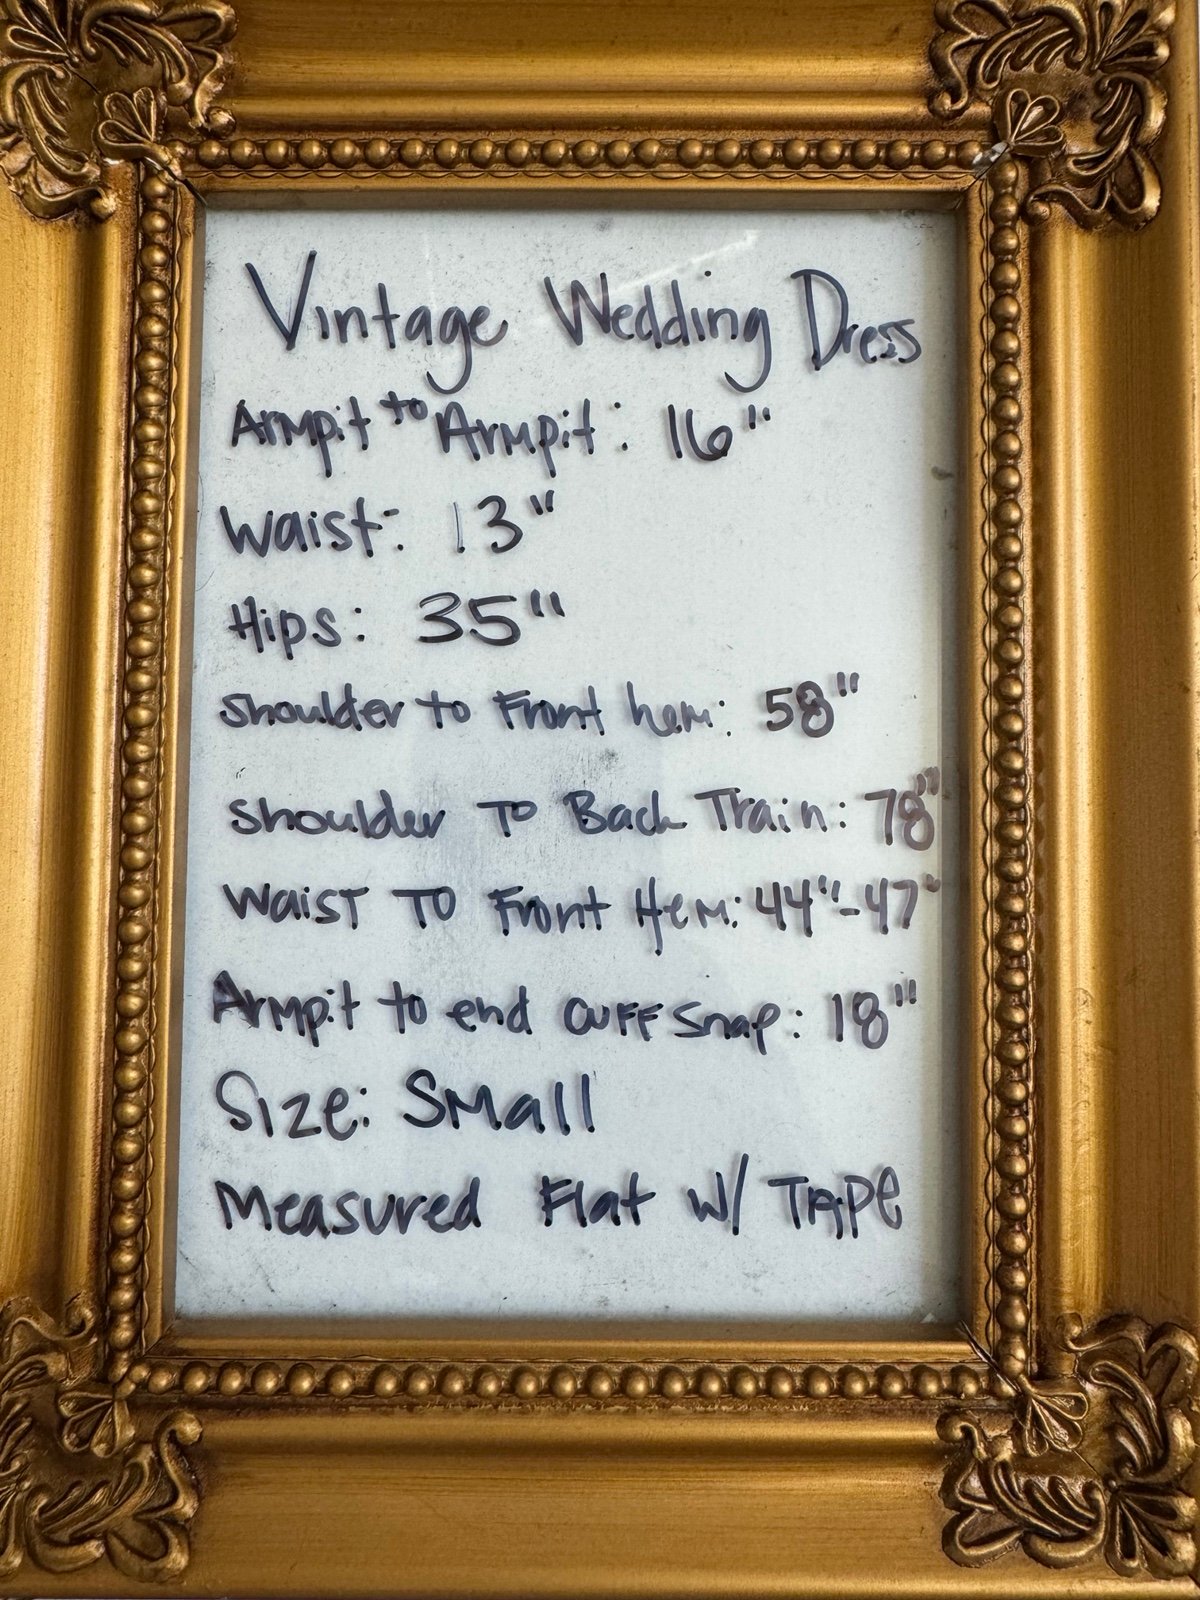 Vintage Wedding Dress
Armpit to Armpit: 16"
Waist: 13"
Hips: 35"
Shoulder to Front hem: 58"
Shoulder To Back Train: 78"
Waist To Front Hem: 44"-47"
Armpit to end cuff snap: 18"
Size: Small
Measured Flat w/ TAPE